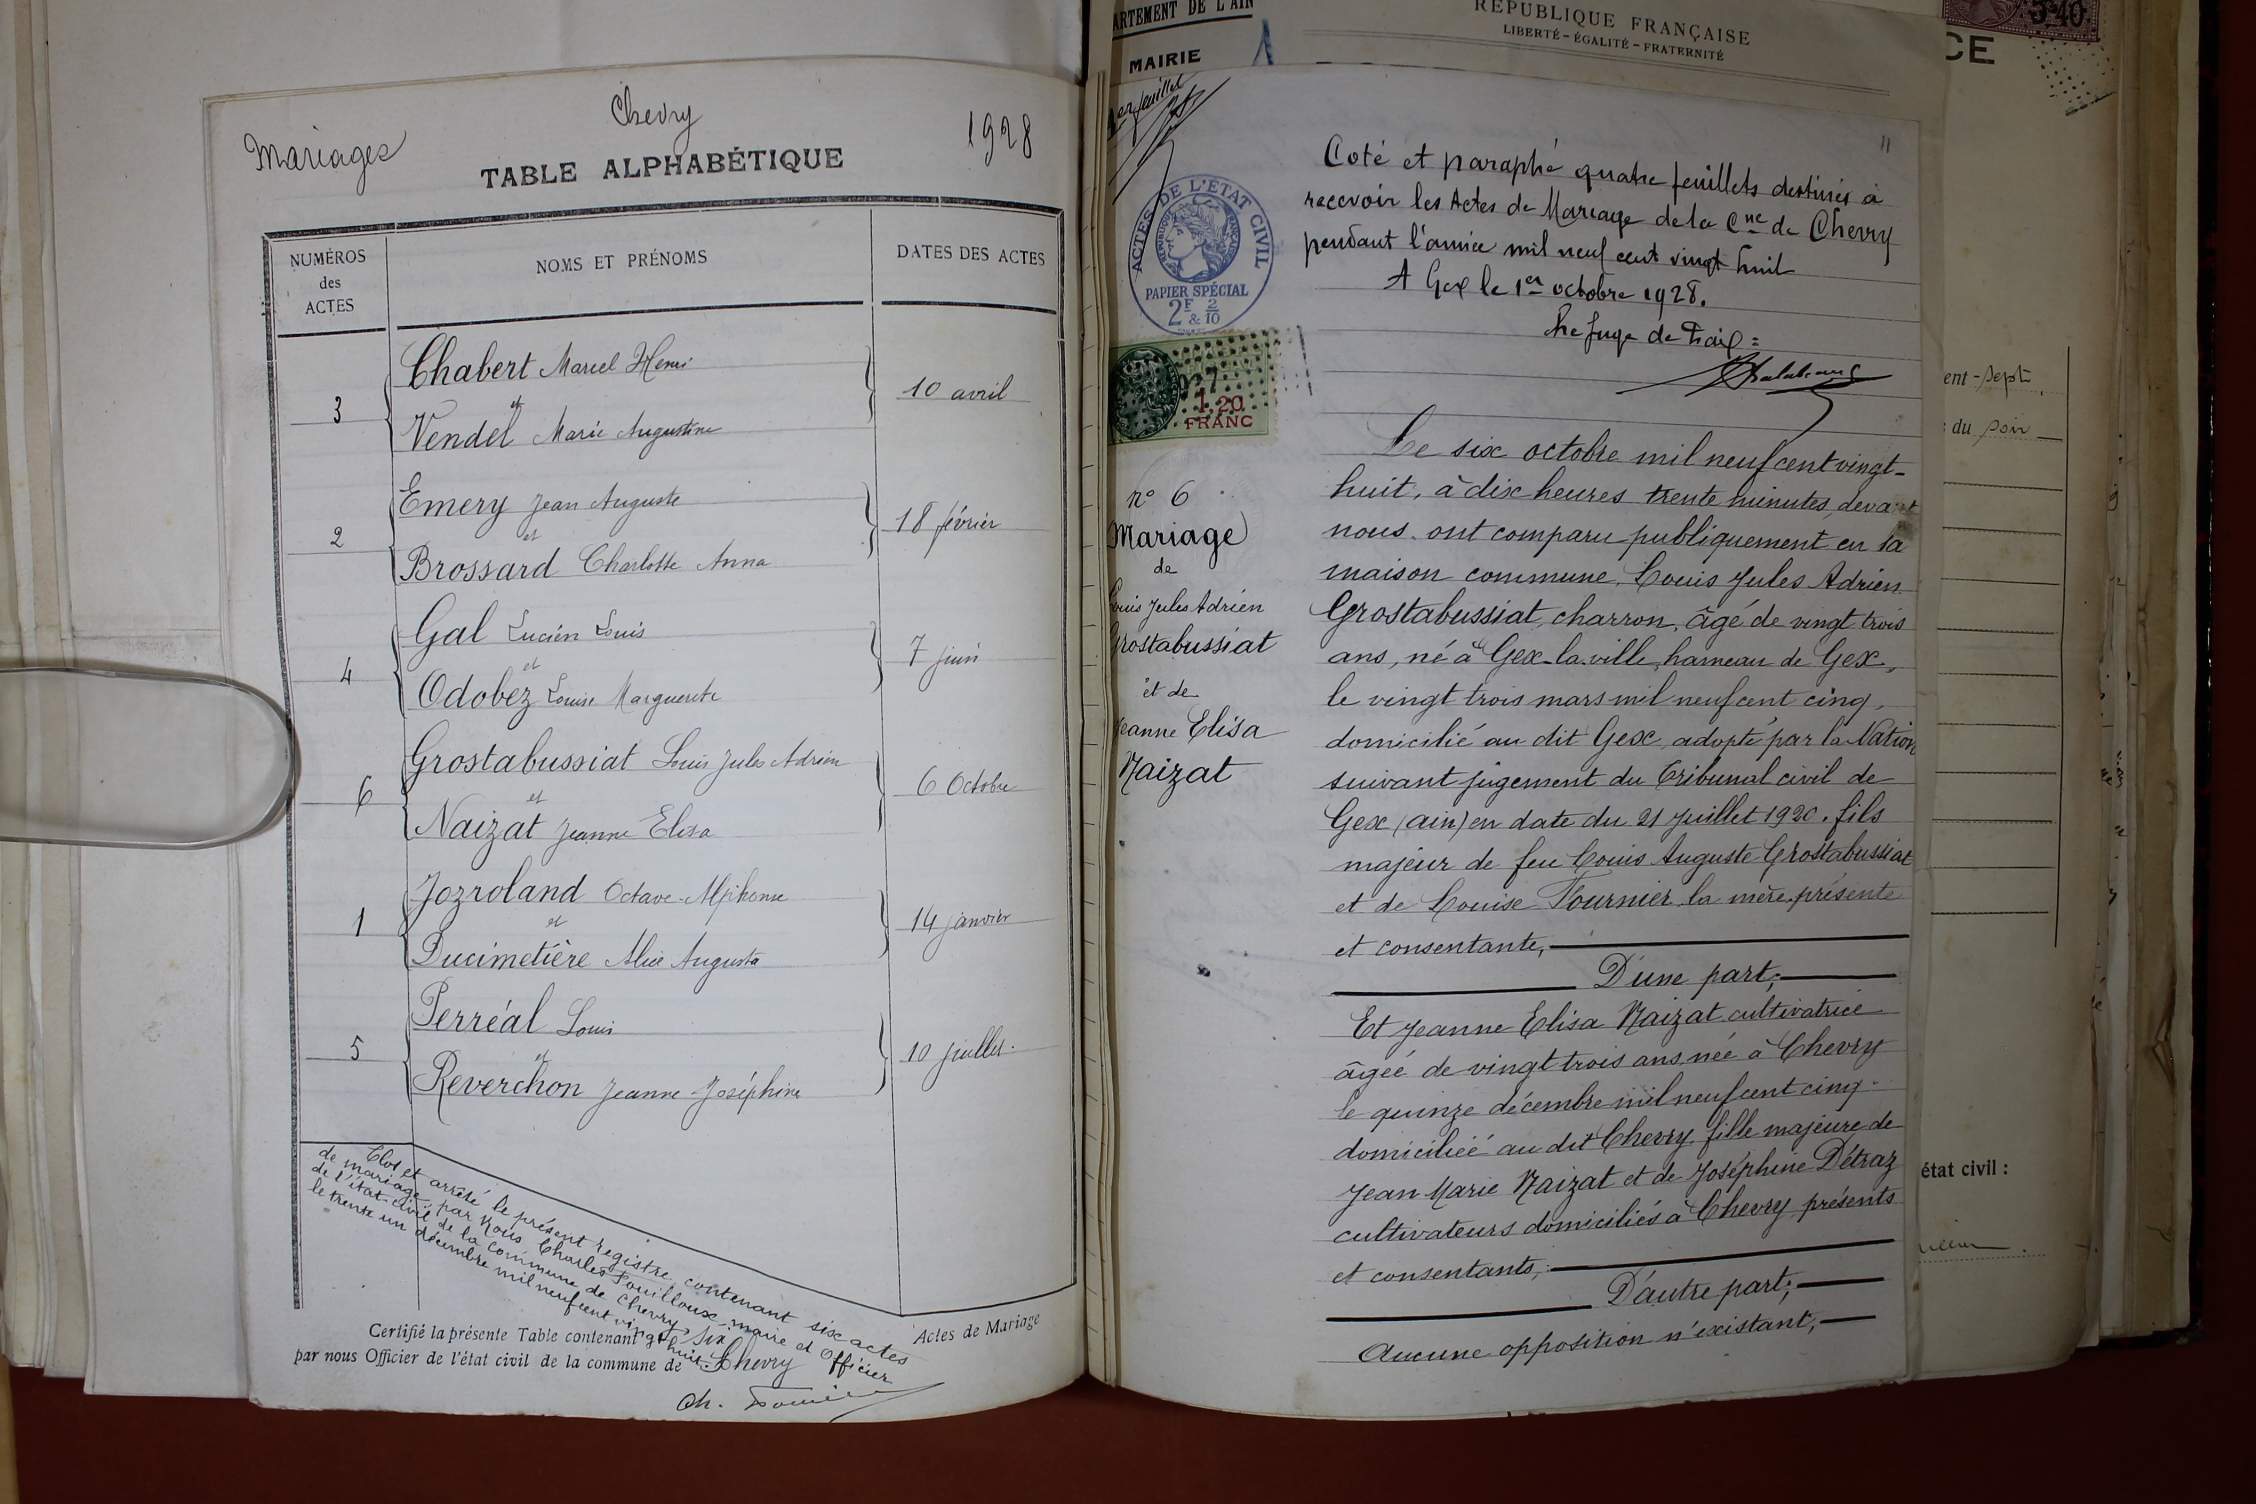 Mariages
Chevry
1928
TABLE ALPHABÉTIQUE
NUMÉROS
des
ACTES
NOMS ET PRÉNOMS
DATES DES ACTES
Chabert Marcel Henri
3
et
10 avril
Vendel Marie Augustine
Emery Jean Auguste
2
et
18 février
Brossard Charlotte Anna
Gal Lucien Louis
4
et
7 juin
Odobez Louise Marguerite
Grostabussiat Louis Jules Adrien
6
et
6 Octobre
Naizat Jeanne Elisa
Jozroland Octave Alphonse
1
et
14 janvier
Ducimetière Alice Augusta
Perréal Louis
5
et
10 juillet.
Reverchon Jeanne-Joséphine
Clos et arrêté le présent registre, contenant six actes
de mariage, par Nous Charles Pouilloux, maire et Officier
de l'état-civil de la commune de Chevry
le trente un décembre mil neufcent vingt huit
Certifié la présente Table contenant six Actes de Mariage
par nous Officier de l'état civil de la commune de Chevry
Ch.
ARTEMENT DE L'AIN
MAIRIE
RÉPUBLIQUE FRANÇAISE
LIBERTÉ - ÉGALITÉ - FRATERNITÉ
CE
3F40
1er feuillet
11
ACTES DE L'ÉTAT CIVIL
RÉPUBLIQUE FRANÇAISE
PAPIER SPÉCIAL
2F & 2/10
1.20
FRANC
Coté et paraphé quatre feuillets destinés à
recevoir les Actes de Mariage de la Cne de Chevry
pendant l'année mil neuf cent vingt huit
A Gex le 1er octobre 1928.
Le Juge de Paix :
n° 6
Mariage
de
Louis Jules Adrien
Grostabussiat
et de
Jeanne Elisa
Naizat
Le six octobre mil neuf cent vingt-
huit, à dix heures trente minutes, devant
nous, ont comparu publiquement en la
maison commune, Louis Jules Adrien
Grostabussiat, charron, âgé de vingt trois
ans, né à Gex-la-ville, hameau de Gex,
le vingt trois mars mil neufcent cinq,
domicilié au dit Gex, adopté par la Nation
suivant jugement du Tribunal civil de
Gex (ain) en date du 21 Juillet 1920. fils
majeur de feu Louis Auguste Grostabussiat
et de Louise Fournier la mère présente
et consentante,
D'une part;
Et Jeanne Elisa Naizat cultivatrice
âgée de vingt trois ans née à Chevry
le quinze décembre mil neuf cent cinq
domiciliée au dit Chevry fille majeure de
Jean Marie Naizat et de Joséphine Détraz
cultivateurs domiciliés à Chevry présents
et consentants,
D'autre part;
Aucune opposition n'existant,
ent-sept
du soir
état civil :